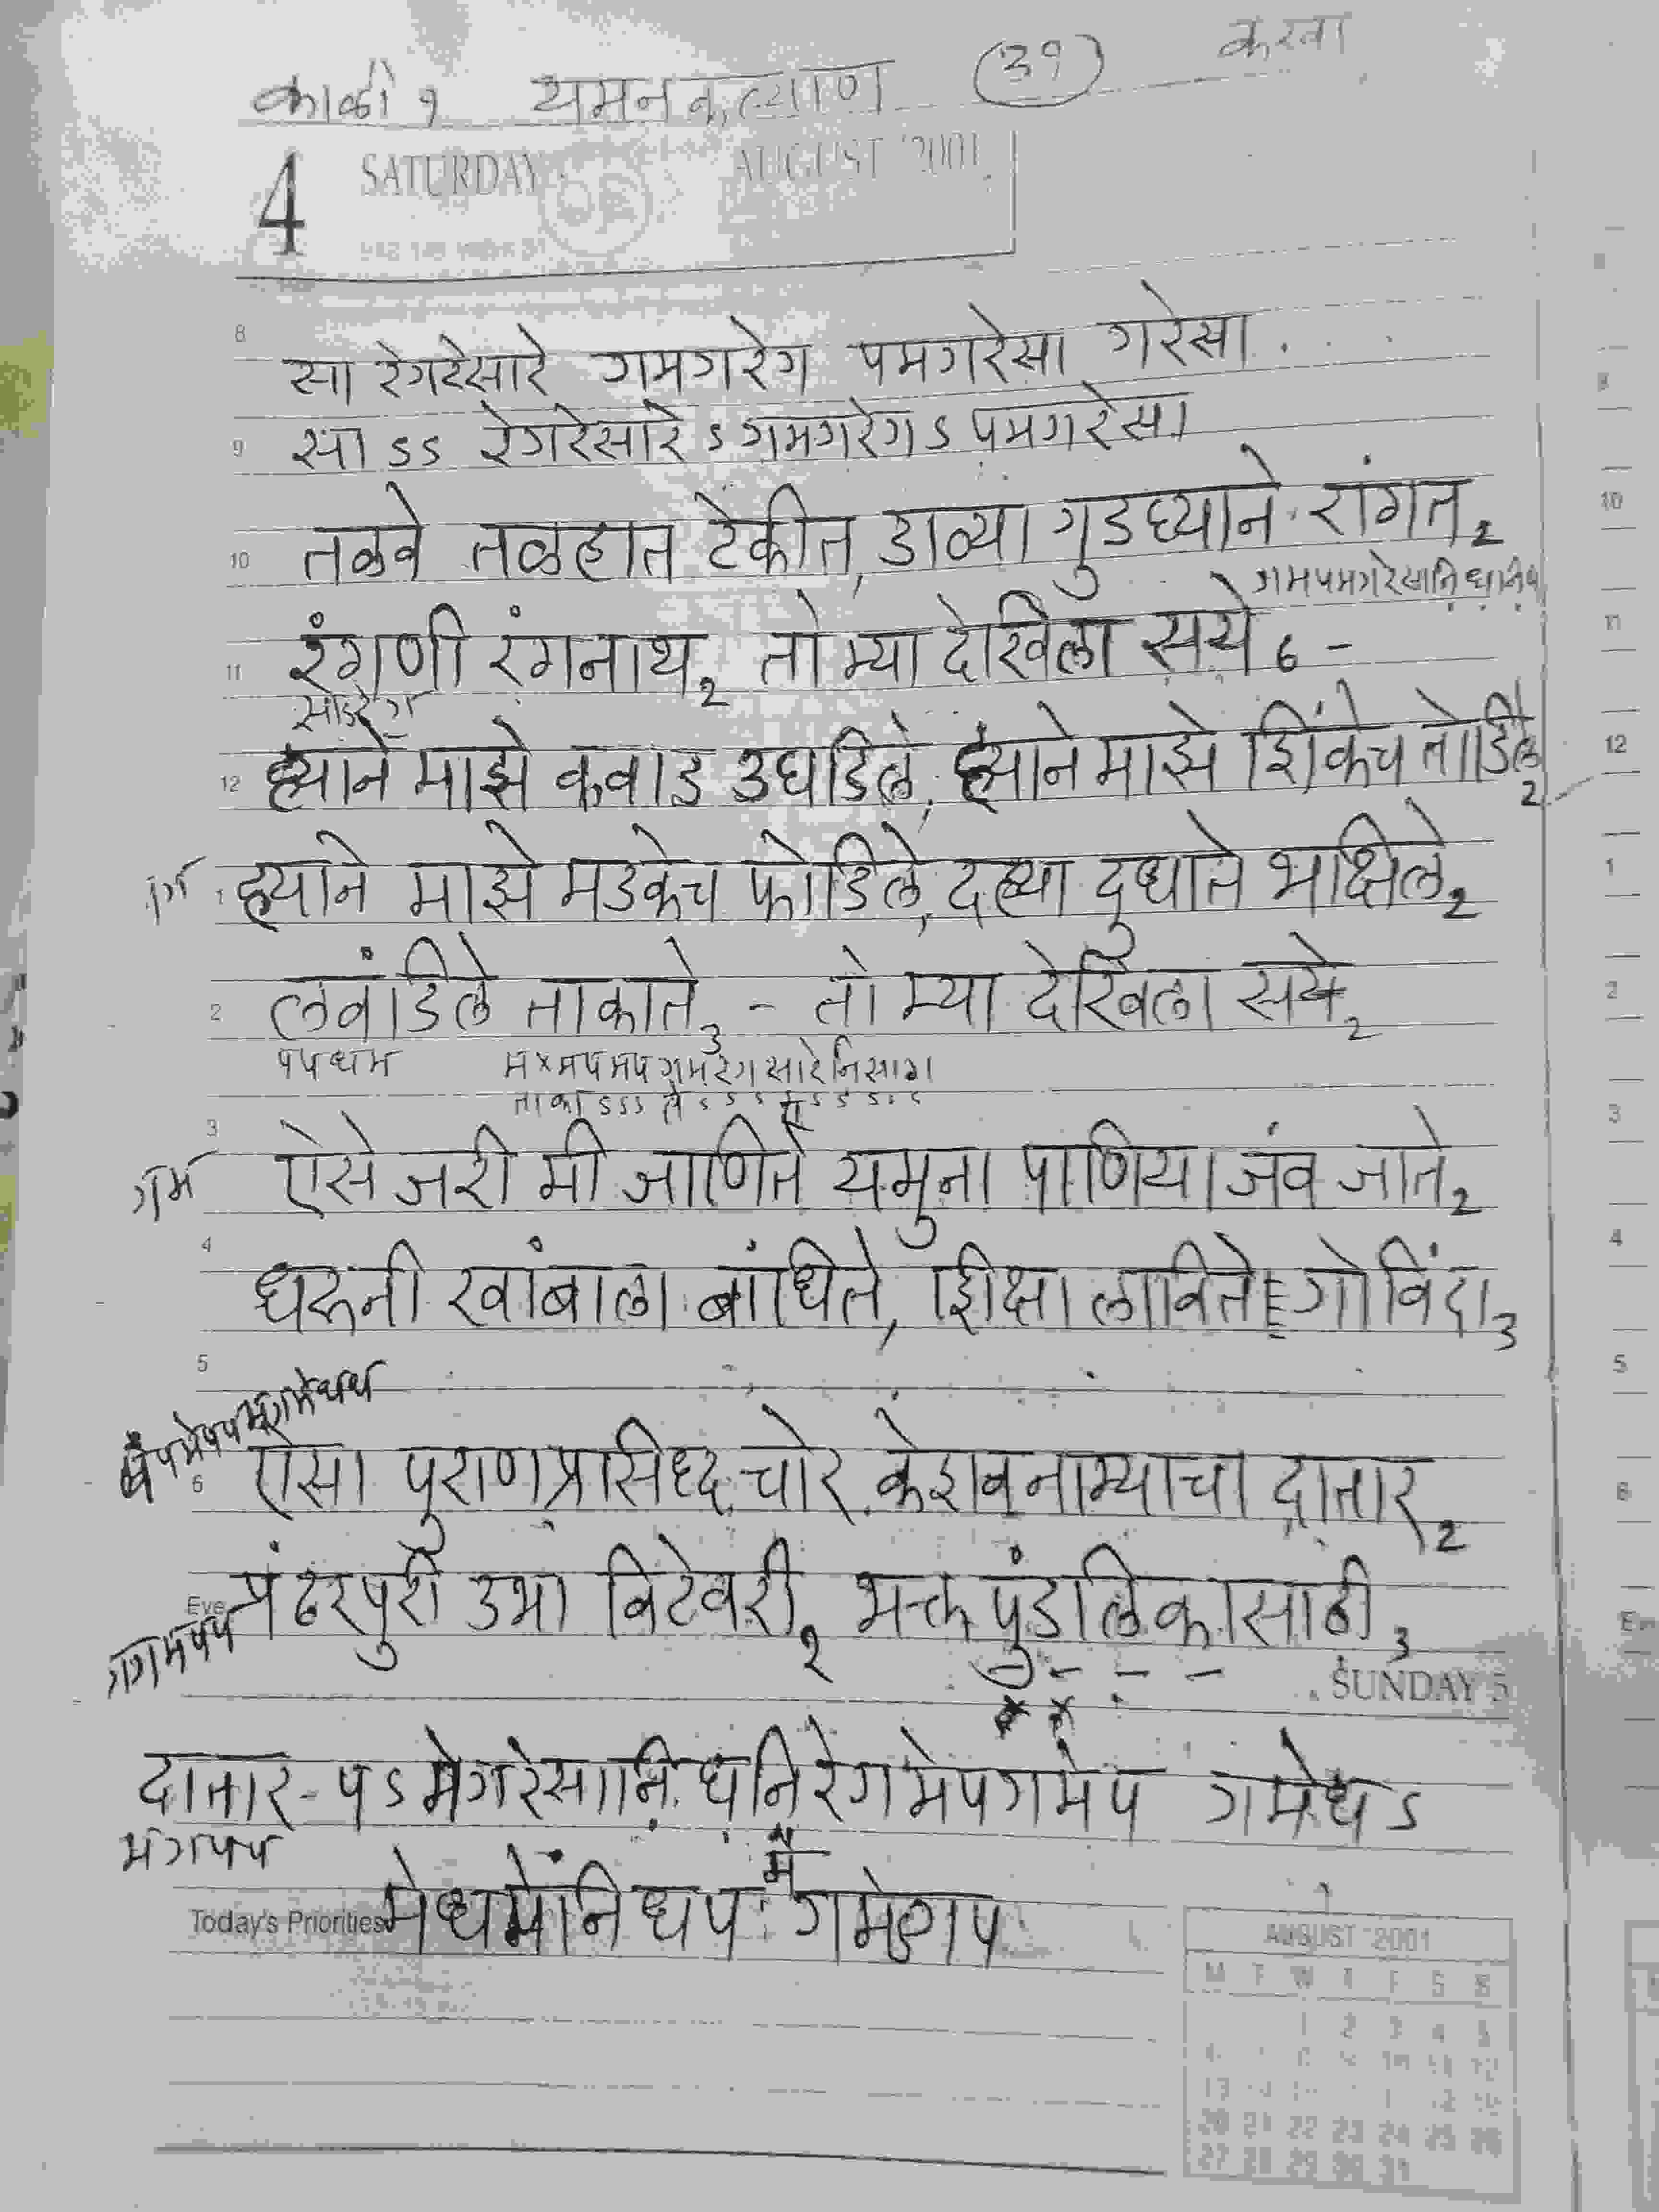 काळी १ यमन कल्याण (39) करवा
4 SATURDAY AUGUST '2001
8
सा रेगरेसारे गमगरेग पमगरेसा गरेसा
9 सा ऽऽ रेगरेसारे ऽ गमगरेग ऽ पमगरेसा
10 तळवे तळहात टेकीत, डाव्या गुडघ्याने रांगत 2 10
गमपमगरेसानि
11 रंगणी रंगनाथ 2 तो म्या देखिला सये 6 - 11
साऽरेग
12 ह्याने माझे कवाड उघडिले, ह्याने माझे शिंकेच तोडिले 2 12
1 ह्याने माझे मडकेच फोडिले, दह्या दुधाते भक्षिले 2 1
2 लवंडिले ताकाते 3 - तो म्या देखिला सये 2 2
पपधम म×मपमप गमरेग सारे निसाग
ताका ऽऽऽ ते
3 3
गम ऐसे जरी मी जाणिते यमुना पाणिया जंव जाते 2
4 4
धरुनी खांबाला बांधिते, शिक्षा लाविते गोविंदा 3
5 5
6 ऐसा पुराणप्रसिध्द चोर केशवनाम्याचा दातार 2 6
Eve पंढरपुरी उभा विटेवरी 2 भक्त पुंडलिकासाठी 3
गगमपप
SUNDAY 5
दातार - प ऽ मेगरेसानि धनिरेगमेपगमेप गमेध ऽ
मगपप
Today's Priorities मेधमेनिधप गमेगप
AUGUST 2001
M T W T F S S
1 2 3 4 5
20 21 22 23 24 25 26
27 28 29 30 31